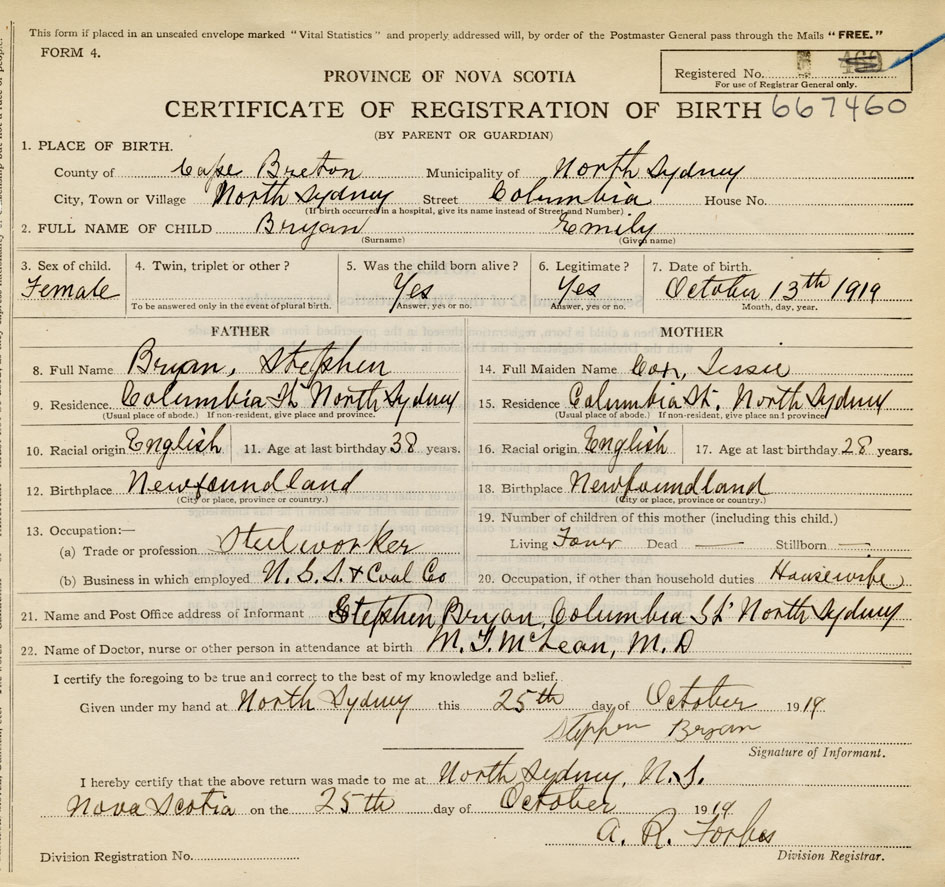 This form if placed in an unsealed envelope marked "Vital Statistics" and properly addressed will, by order of the Postmaster General pass through the Mails "FREE."
FORM 4.
PROVINCE OF NOVA SCOTIA
Registered No. 460
For use of Registrar General only.
CERTIFICATE OF REGISTRATION OF BIRTH 667460
(BY PARENT OR GUARDIAN)
1. PLACE OF BIRTH.
County of Cape Breton Municipality of North Sydney
City, Town or Village North Sydney Street Columbia House No.
(If birth occurred in a hospital, give its name instead of Street and Number)
2. FULL NAME OF CHILD Bryan Emily
(Surname) (Given name)
3. Sex of child. 4. Twin, triplet or other? 5. Was the child born alive? 6. Legitimate? 7. Date of birth.
Female Yes Yes October 13th 1919
To be answered only in the event of plural birth. Answer, yes or no. Answer, yes or no. Month, day, year.
FATHER MOTHER
8. Full Name Bryan, Stephen 14. Full Maiden Name Cox, Jessie
9. Residence. Columbia St North Sydney 15. Residence Columbia St. North Sydney
(Usual place of abode.) If non-resident, give place and province. (Usual place of abode.) If non-resident, give place and province
10. Racial origin English 11. Age at last birthday 38 years. 16. Racial origin English 17. Age at last birthday 28 years.
12. Birthplace Newfoundland 18. Birthplace Newfoundland
(City or place, province or country.) (City or place, province or country.)
13. Occupation:— 19. Number of children of this mother (including this child.)
(a) Trade or profession Steelworker Living Four Dead — Stillborn —
(b) Business in which employed N.S.S. & Coal Co 20. Occupation, if other than household duties Housewife
21. Name and Post Office address of Informant Stephen Bryan, Columbia St North Sydney
22. Name of Doctor, nurse or other person in attendance at birth M. T. McLean, M. D
I certify the foregoing to be true and correct to the best of my knowledge and belief.
Given under my hand at North Sydney this 25th day of October 1919
Stephen Bryan
Signature of Informant.
I hereby certify that the above return was made to me at North Sydney, N.S.
Nova Scotia on the 25th day of October 1919
A. R. Forbes
Division Registration No. Division Registrar.